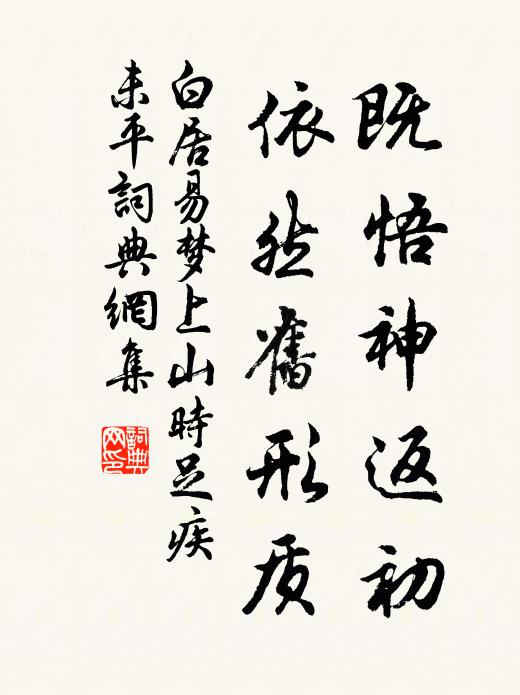 既悟神返初
依然舊形质
白居易梦上山時足疾
未平詞典網集
詞典
网印